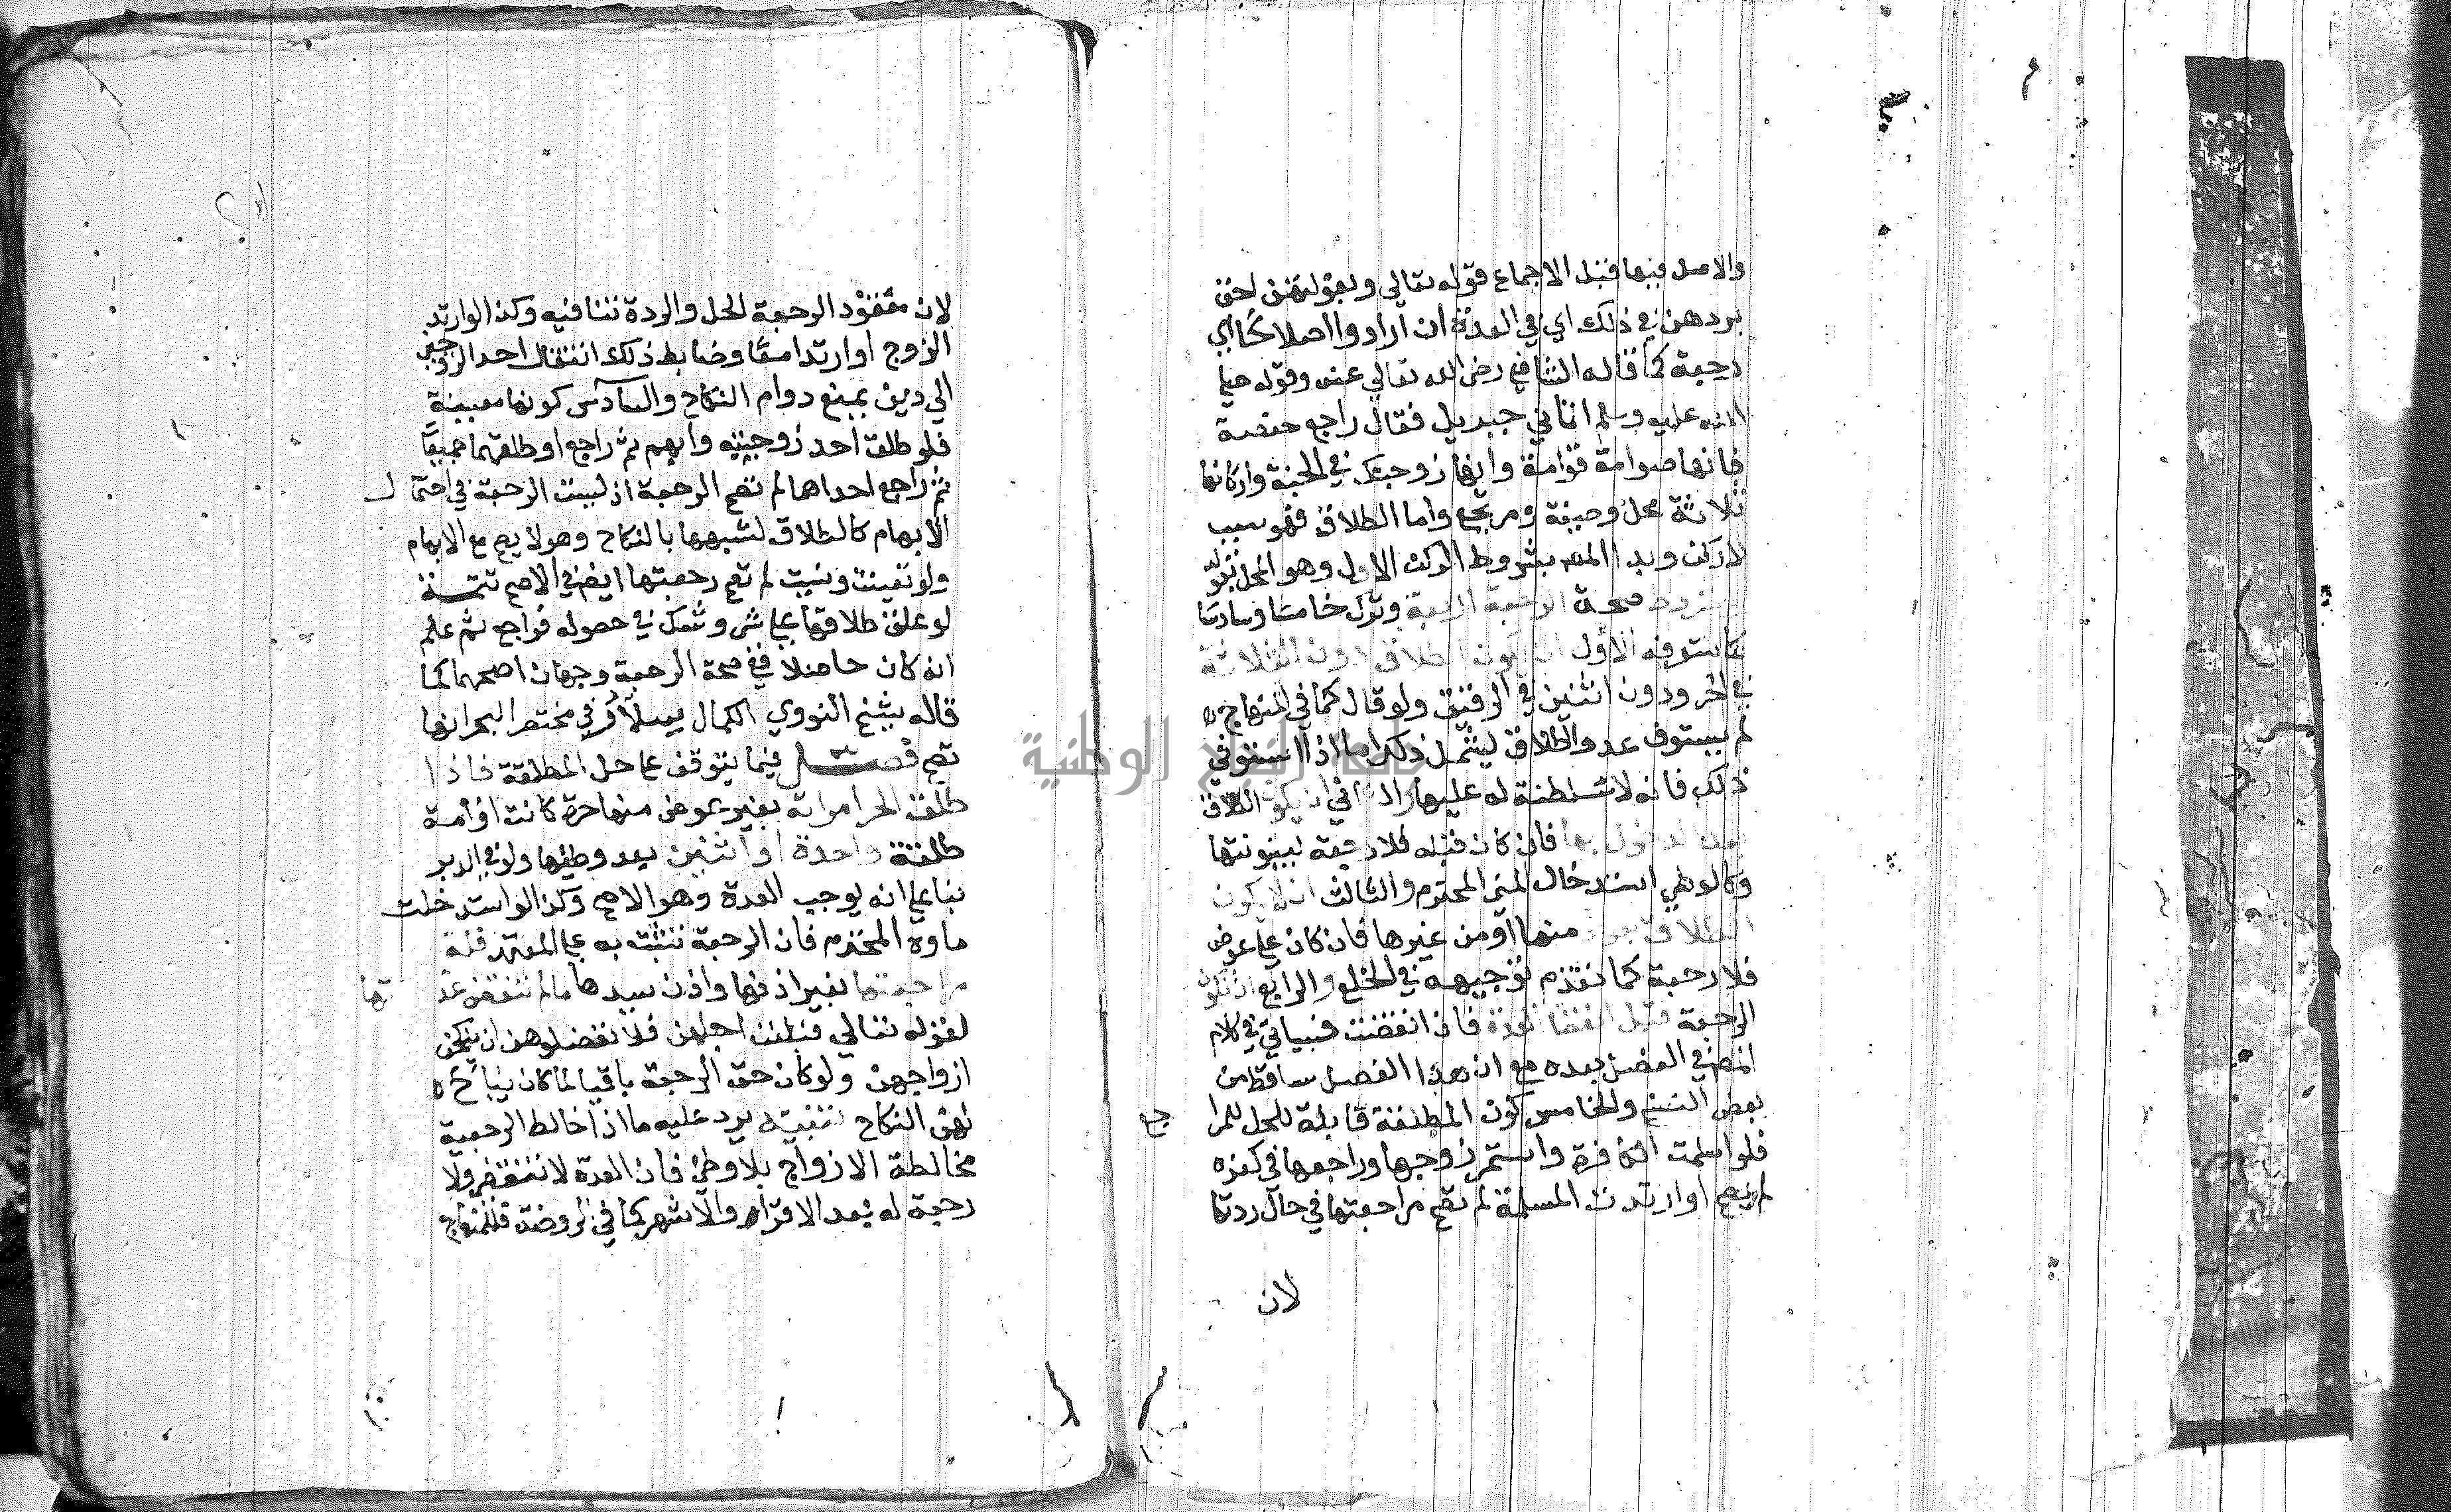 والاصل فيها قبل الاجماع قوله تعالي وبعولتهن احق
بردهن في ذلك اي في العدة ان ارادوا اصلاحا اي
رجعة كما قاله الشافعي رضي الله تعالي عنه وقوله صلي
الله عليه وسلم اتاني جبريل فقال راجع حفصة
فانها صوامة قوامة وانها زوجتك في الجنة واركانها
ثلاثة محل وصيغة ومرتجع واما الطلاق فهو سبب
لا ركن وبدا المص بشروط الركن الاول وهو المحل بقوله
شروط صحة الرجعة اربعة وترك خامسا وسادسا
كما ستعرفه الاول ان يكون الطلاق دون الثلاثة
في الحر ودون اثنين في الرقيق ولو قال كما في المنهاج
لم يستوف عدد الطلاق ليشمل ذلك اما اذا استوفي
ذلك فانه لا سلطنة له عليها والثاني ان يكون الطلاق
بعد الدخول بها فان كان قبله فلا رجعة لبينونتها
وكالوطي استدخال المني المحترم والثالث ان لا يكون
الطلاق بعوض منها او من غيرها فان كان علي عوض
فلا رجعة كما تقدم توجيهه في الخلع والرابع ان تكون
الرجعة قبل انقضا العدة فان انقضت فسياتي في كلام
المص في الفصل بعده مع ان هذا الفصل ساقط من
بعض النسخ والخامس كون المطلقة قابلة للحل للمرا
جع
فلو اسلمت الكافرة واستمر زوجها وراجعها في كفره
لم يصح او ارتدت المسلمة لم تصح مراجعتها في حال ردتها
لان
لان مقصود الرجعة الحل والردة تنافيه وكذا لو ارتد
الزوج او ارتدا معا وضابط ذلك انتقال احد الزوجين
الي دين يمنع دوام النكاح والسادس كونها معينة
فلو طلق احد زوجتيه وابهم ثم راجع او طلقهما جميعا
ثم راجع احداهما لم تصح الرجعة اذ ليست الرجعة في احتمال
الابهام كالطلاق لشبهها بالنكاح وهو لا يصح مع الابهام
ولو تعينت ونسيت لم تصح رجعتها ايضا في الاصح تتمة
لو علق طلاقها علي شي وشك في حصوله فراجع ثم علم
انه كان حاصلا ففي صحة الرجعة وجهان اصحهما كما
قاله شيخ النووي الكمال سلار في مختصر البحر انها
تصح فصل فيما يتوقف عليه حل المطلقة فاذا
طلق الحر امراته بغير عوض منها حرة كانت او امة
طلقة واحدة او اثنين بعد وطيها ولو في الدبر
بنا علي انه يوجب العدة وهو الاصح وكذا لو استدخلت
ماوه المحترم فان الرجعة تثبت به علي المعتمد فله
مراجعتها بغير اذنها واذن سيدها ما لم تنقض عدتها
لقوله تعالي فبلغن اجلهن فلا تعضلوهن ان ينكحن
ازواجهن ولو كان حق الرجعة باقيا لما كان يباح
لهن النكاح تنبيه يرد عليه ما اذا خالط الرجعية
مخالطة الازواج بلا وطئ فان العدة لا تنقضي ولا
رجعة له بعد الاقراء والاشهر كما في الروضة والمنهاج